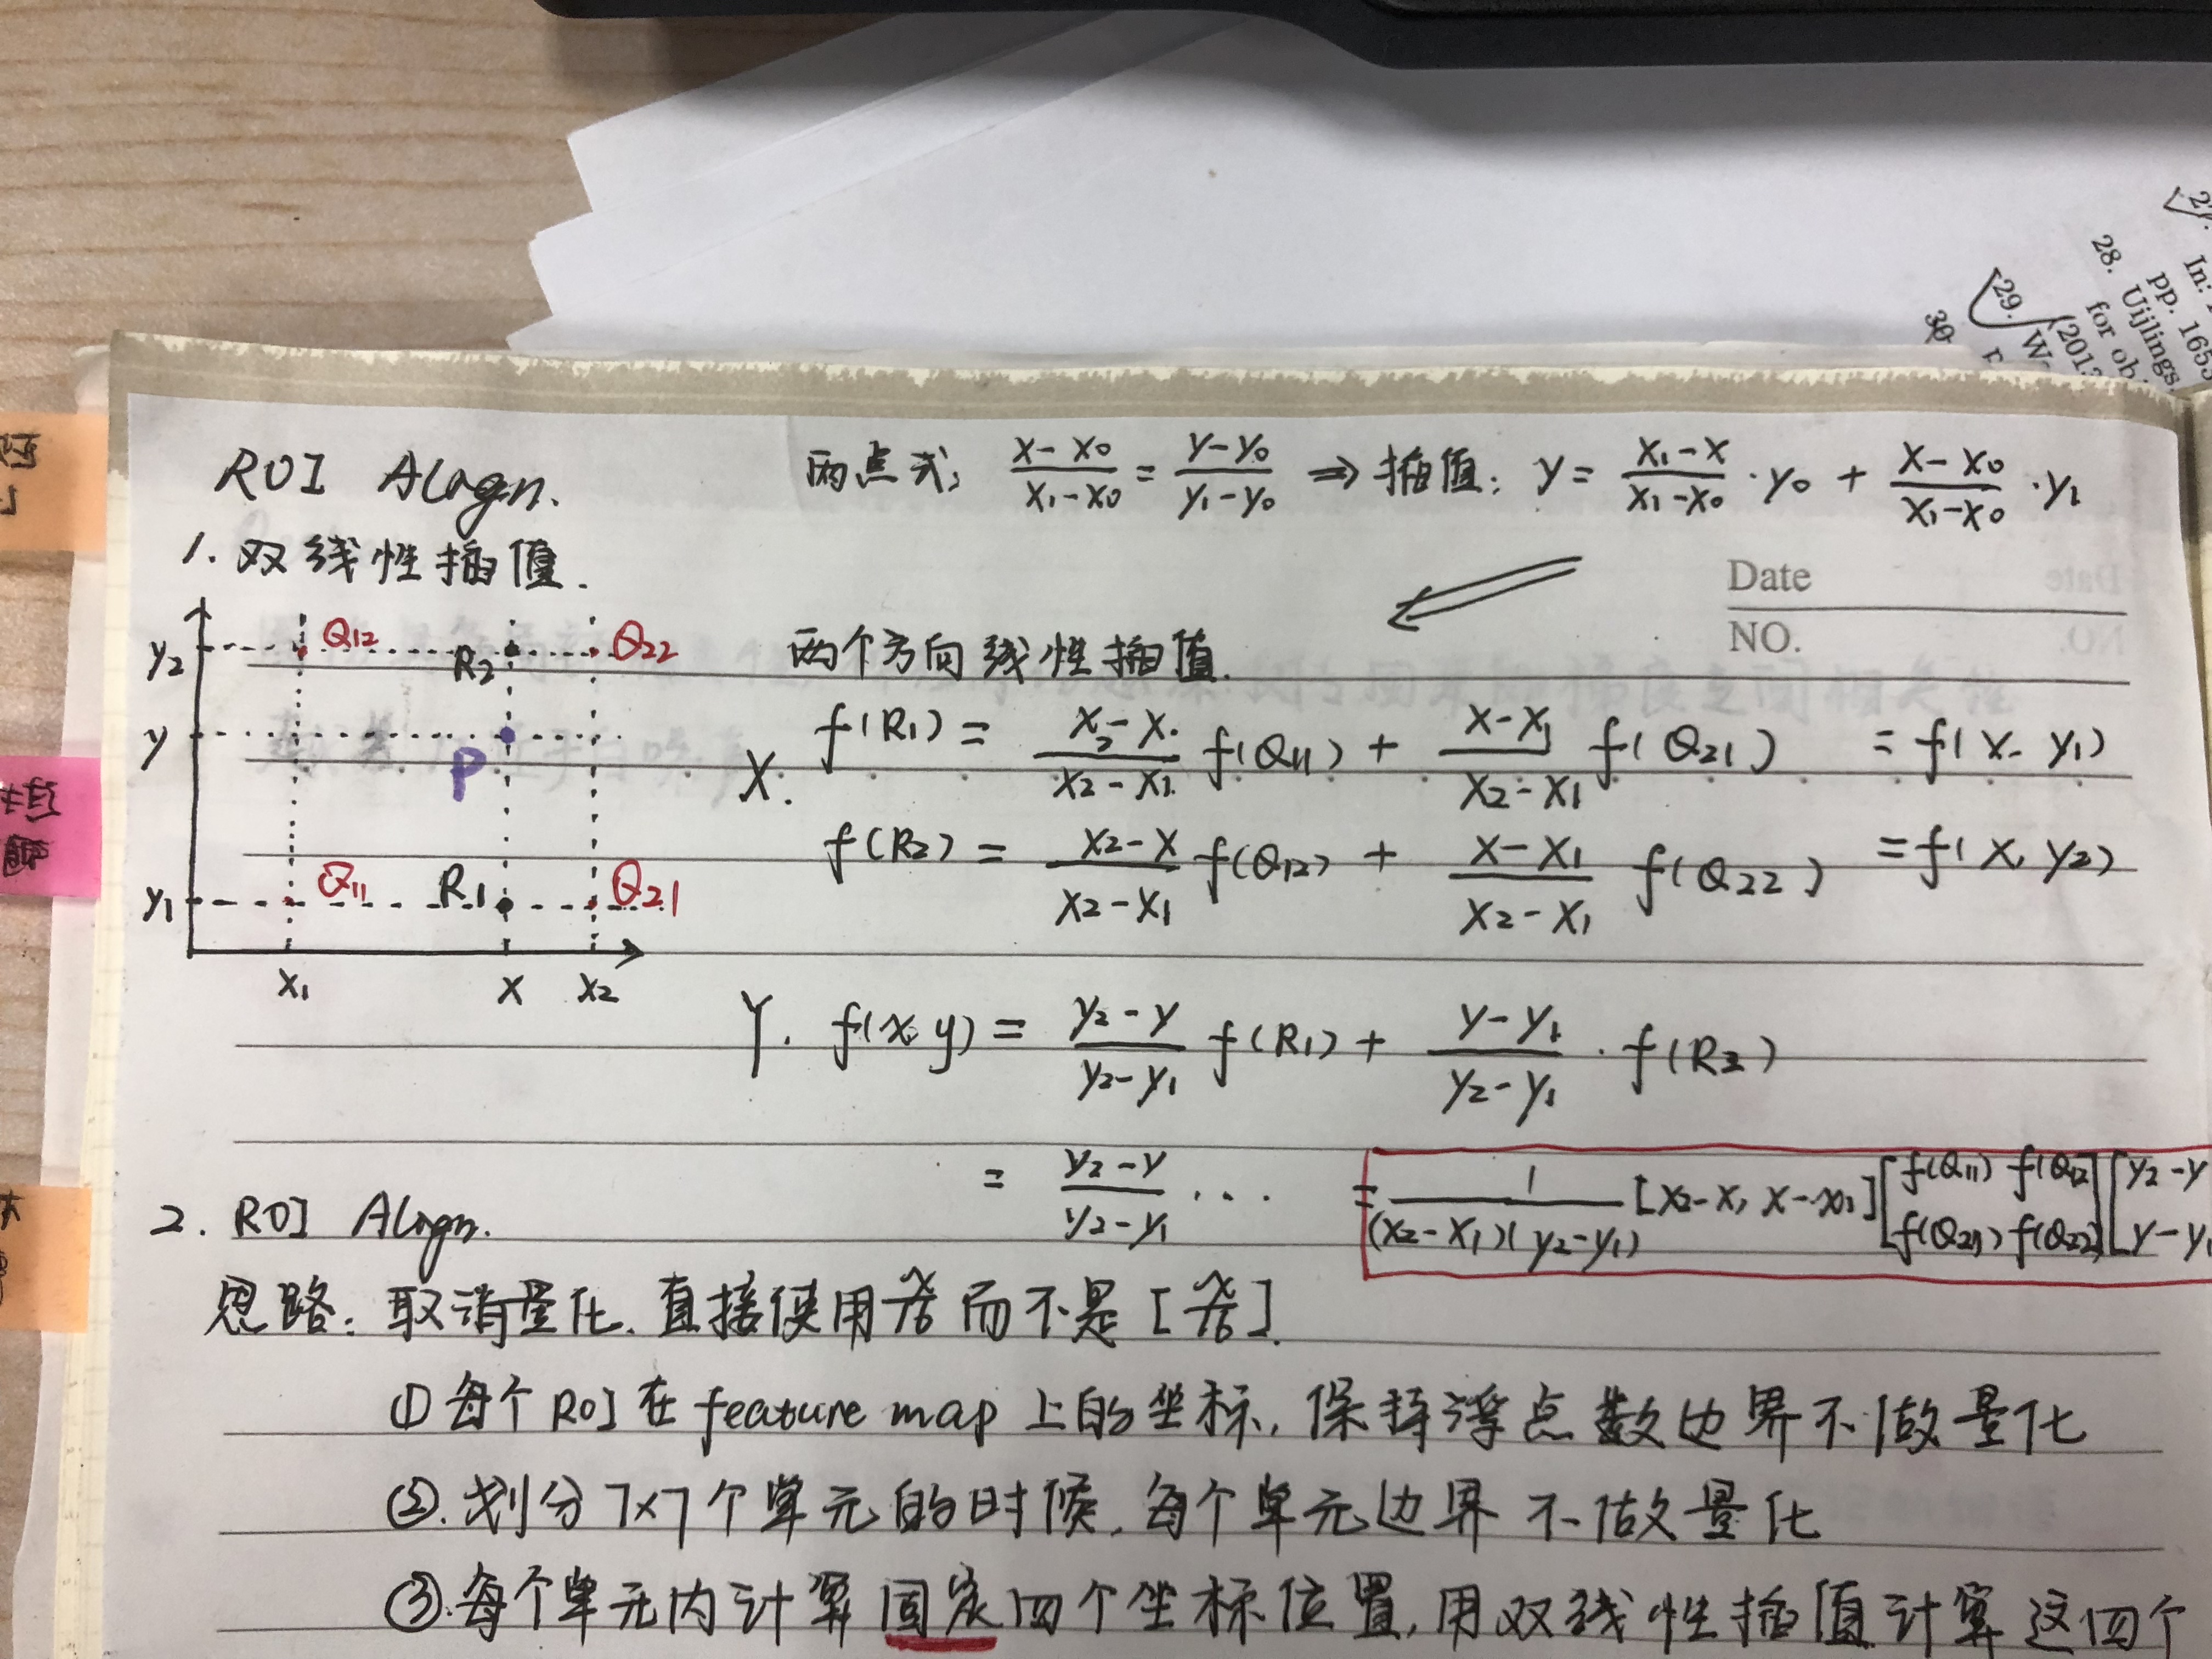 ROI Align.
两点式: (x-x₀)/(x₁-x₀) = (y-y₀)/(y₁-y₀) ⇒ 插值: y = (x₁-x)/(x₁-x₀) · y₀ + (x-x₀)/(x₁-x₀) · y₁
Date
NO.
1. 双线性插值.
两个方向线性插值
y₂
Q₁₂
R₂
Q₂₂
y
P
y₁
Q₁₁
R₁
Q₂₁
x₁
x
x₂
X. f(R₁) = (x₂-x)/(x₂-x₁) f(Q₁₁) + (x-x₁)/(x₂-x₁) f(Q₂₁) = f(x. y₁)
f(R₂) = (x₂-x)/(x₂-x₁) f(Q₁₂) + (x-x₁)/(x₂-x₁) f(Q₂₂) = f(x, y₂)
Y. f(x y) = (y₂-y)/(y₂-y₁) f(R₁) + (y-y₁)/(y₂-y₁) · f(R₂)
= (y₂-y)/(y₂-y₁) ... = 1/((x₂-x₁)(y₂-y₁)) [x₂-x, x-x₁] [f(Q₁₁) f(Q₁₂) f(Q₂₁) f(Q₂₂)] [y₂-y y-y₁
2. ROI Align.
思路: 取消量化. 直接使用 而不是
① 每个 ROI 在 feature map 上的坐标, 保持浮点数边界不做量化
②. 划分 7×7 个单元的时候, 每个单元边界不做量化
③. 每个单元内计算固定四个坐标位置, 用双线性插值计算这四个
29.
28.
Uijlings,
for ob
pp. 1653
In: